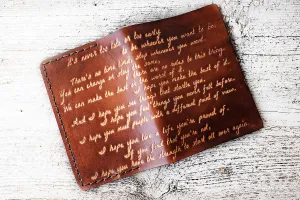 It's never too late or too early
to be whoever you want to be.
There's no time limit, stop whenever you want.
You can change or stay the same,
there are no rules to this thing.
We can make the best or the worst of it.
And I hope you make the best of it.
I hope you see things that startle you.
I hope you feel things you never felt before.
I hope you meet people with a different point of view.
I hope you live a life you're proud of.
If you find that you're not,
I hope you have the strength to start all over again.